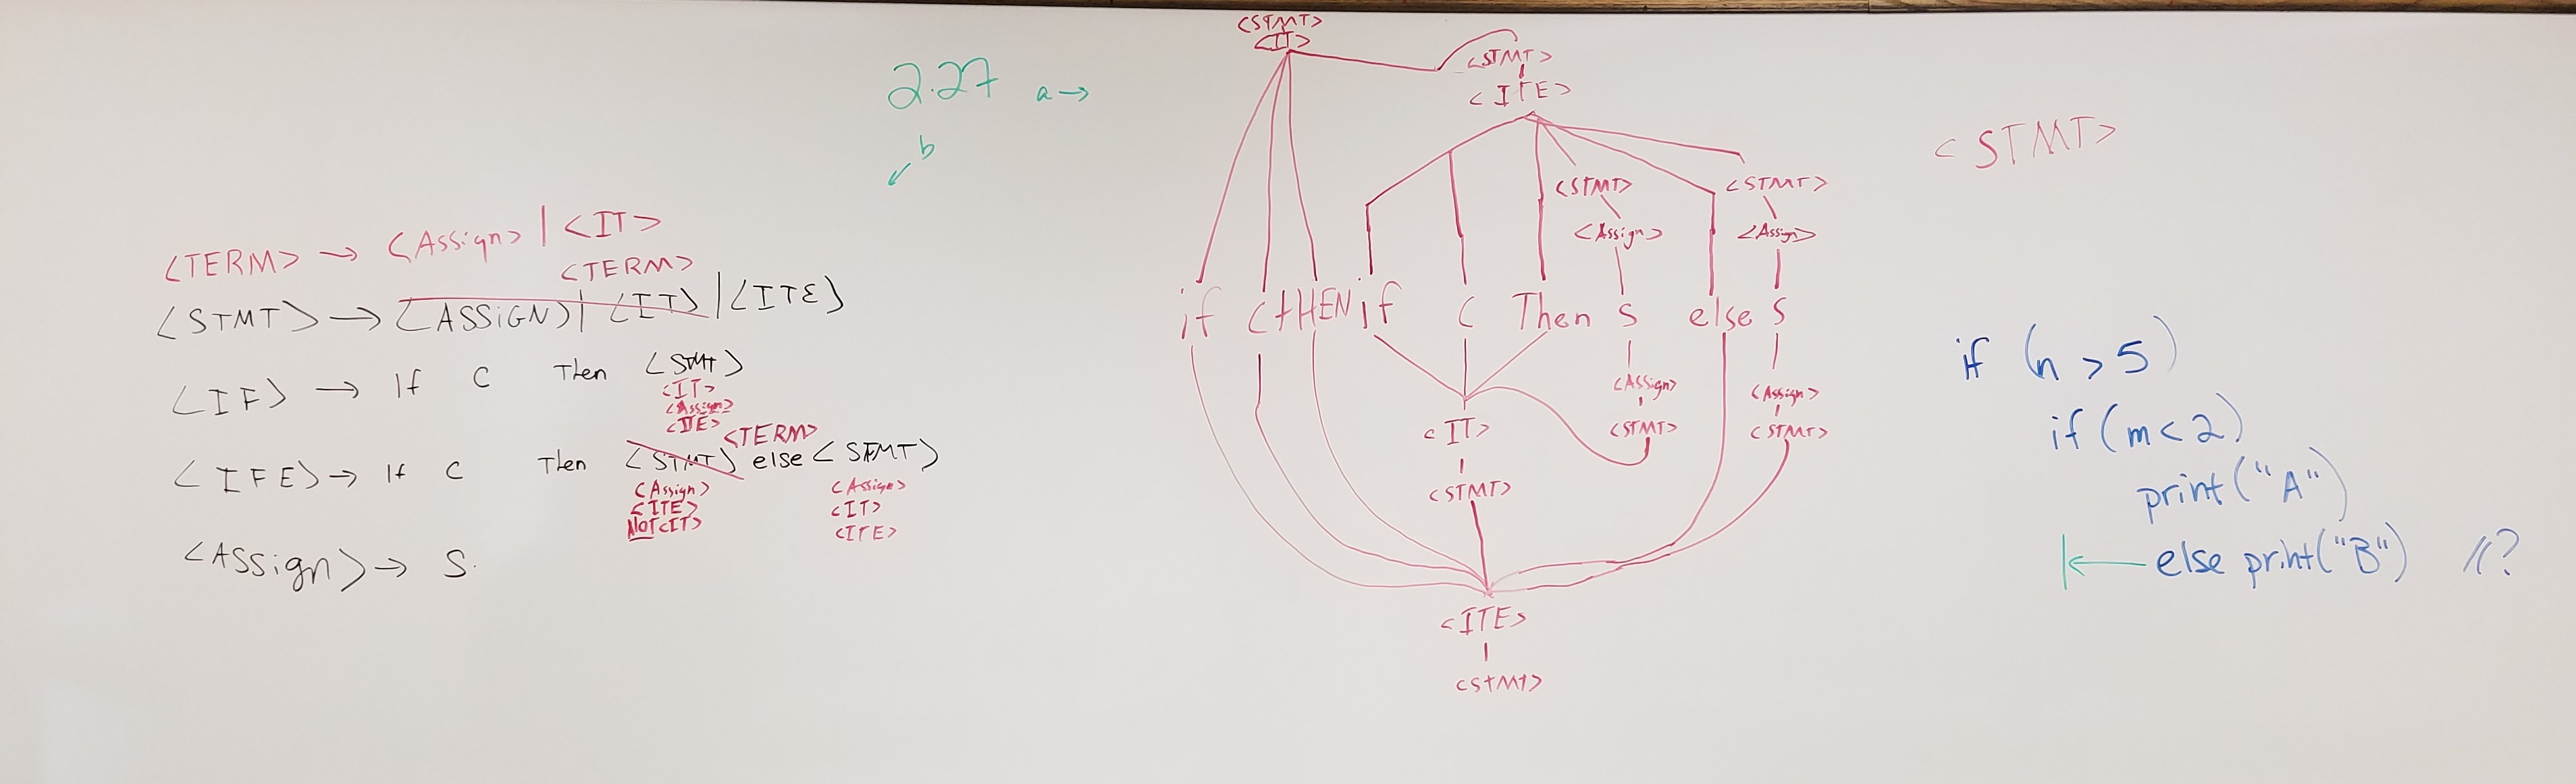 2.27 a →
b
<TERM> → <Assign> | <IT>
<TERM>
<STMT> → <ASSIGN> | <IT> | <ITE>
<IF> → If C Then <STMT>
<IT>
<Assign>
<ITE>
<TERM>
<IFE> → If C Then <STMT> else <STMT>
<Assign> <Assign>
<ITE> <IT>
NOT <IT> <ITE>
<ASSign> → S.
<STMT>
<IT>
<STMT>
<ITE>
<STMT> <STMT>
<Assign> <Assign>
if C tHEN if C Then S else S
<Assign> <Assign>
<IT> <STMT> <STMT>
<STMT>
<ITE>
<STMT>
<STMT>
if (n > 5)
if (m < 2)
print("A")
else print("B") //?